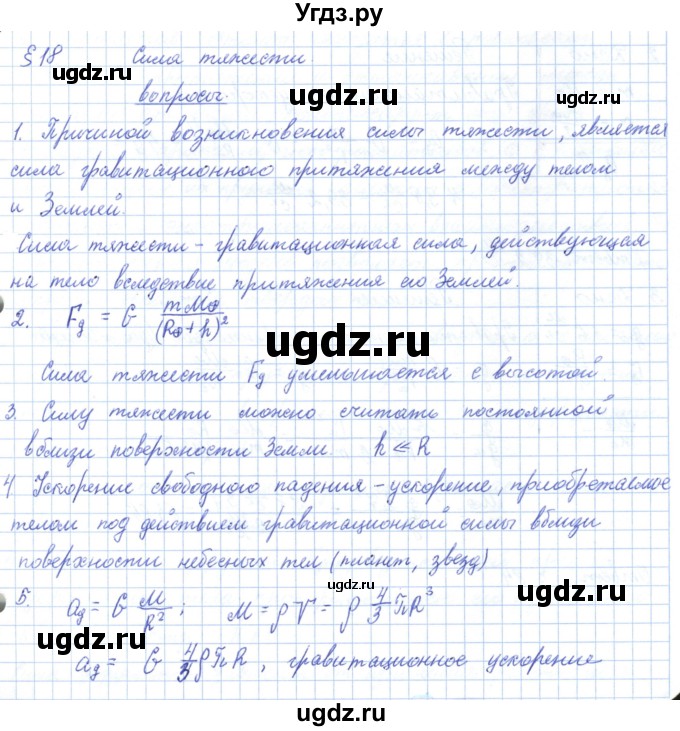 Угдз.ру
§ 18 Сила тяжести.
вопросы.
1. Причиной возникновения силы тяжести, является
сила гравитационного притяжения между телом
и Землей.
Сила тяжести – гравитационная сила, действующая
на тело вследствие притяжения его Землей.
2. Fg = G mM⊕/(R⊕ + h)²
Сила тяжести Fg уменьшается с высотой.
3. Силу тяжести можно считать постоянной
вблизи поверхности Земли. h ≪ R
4 Ускорение свободного падения – ускорение, приобретаемое
телом под действием гравитационной силы вблизи
поверхности небесных тел (планет, звезд)
5. ag = G M/R² ; M = ρV = ρ 4/3 πR³
ag = G 4/3 ρπR, гравитационное ускорение
ugdz.ru
ugdz.ru
ugdz.ru
ugdz.ru
ugdz.ru
ugdz.ru
ugdz.ru
ugdz.ru
ugdz.ru
ugdz.ru
ugdz.ru
ugdz.ru